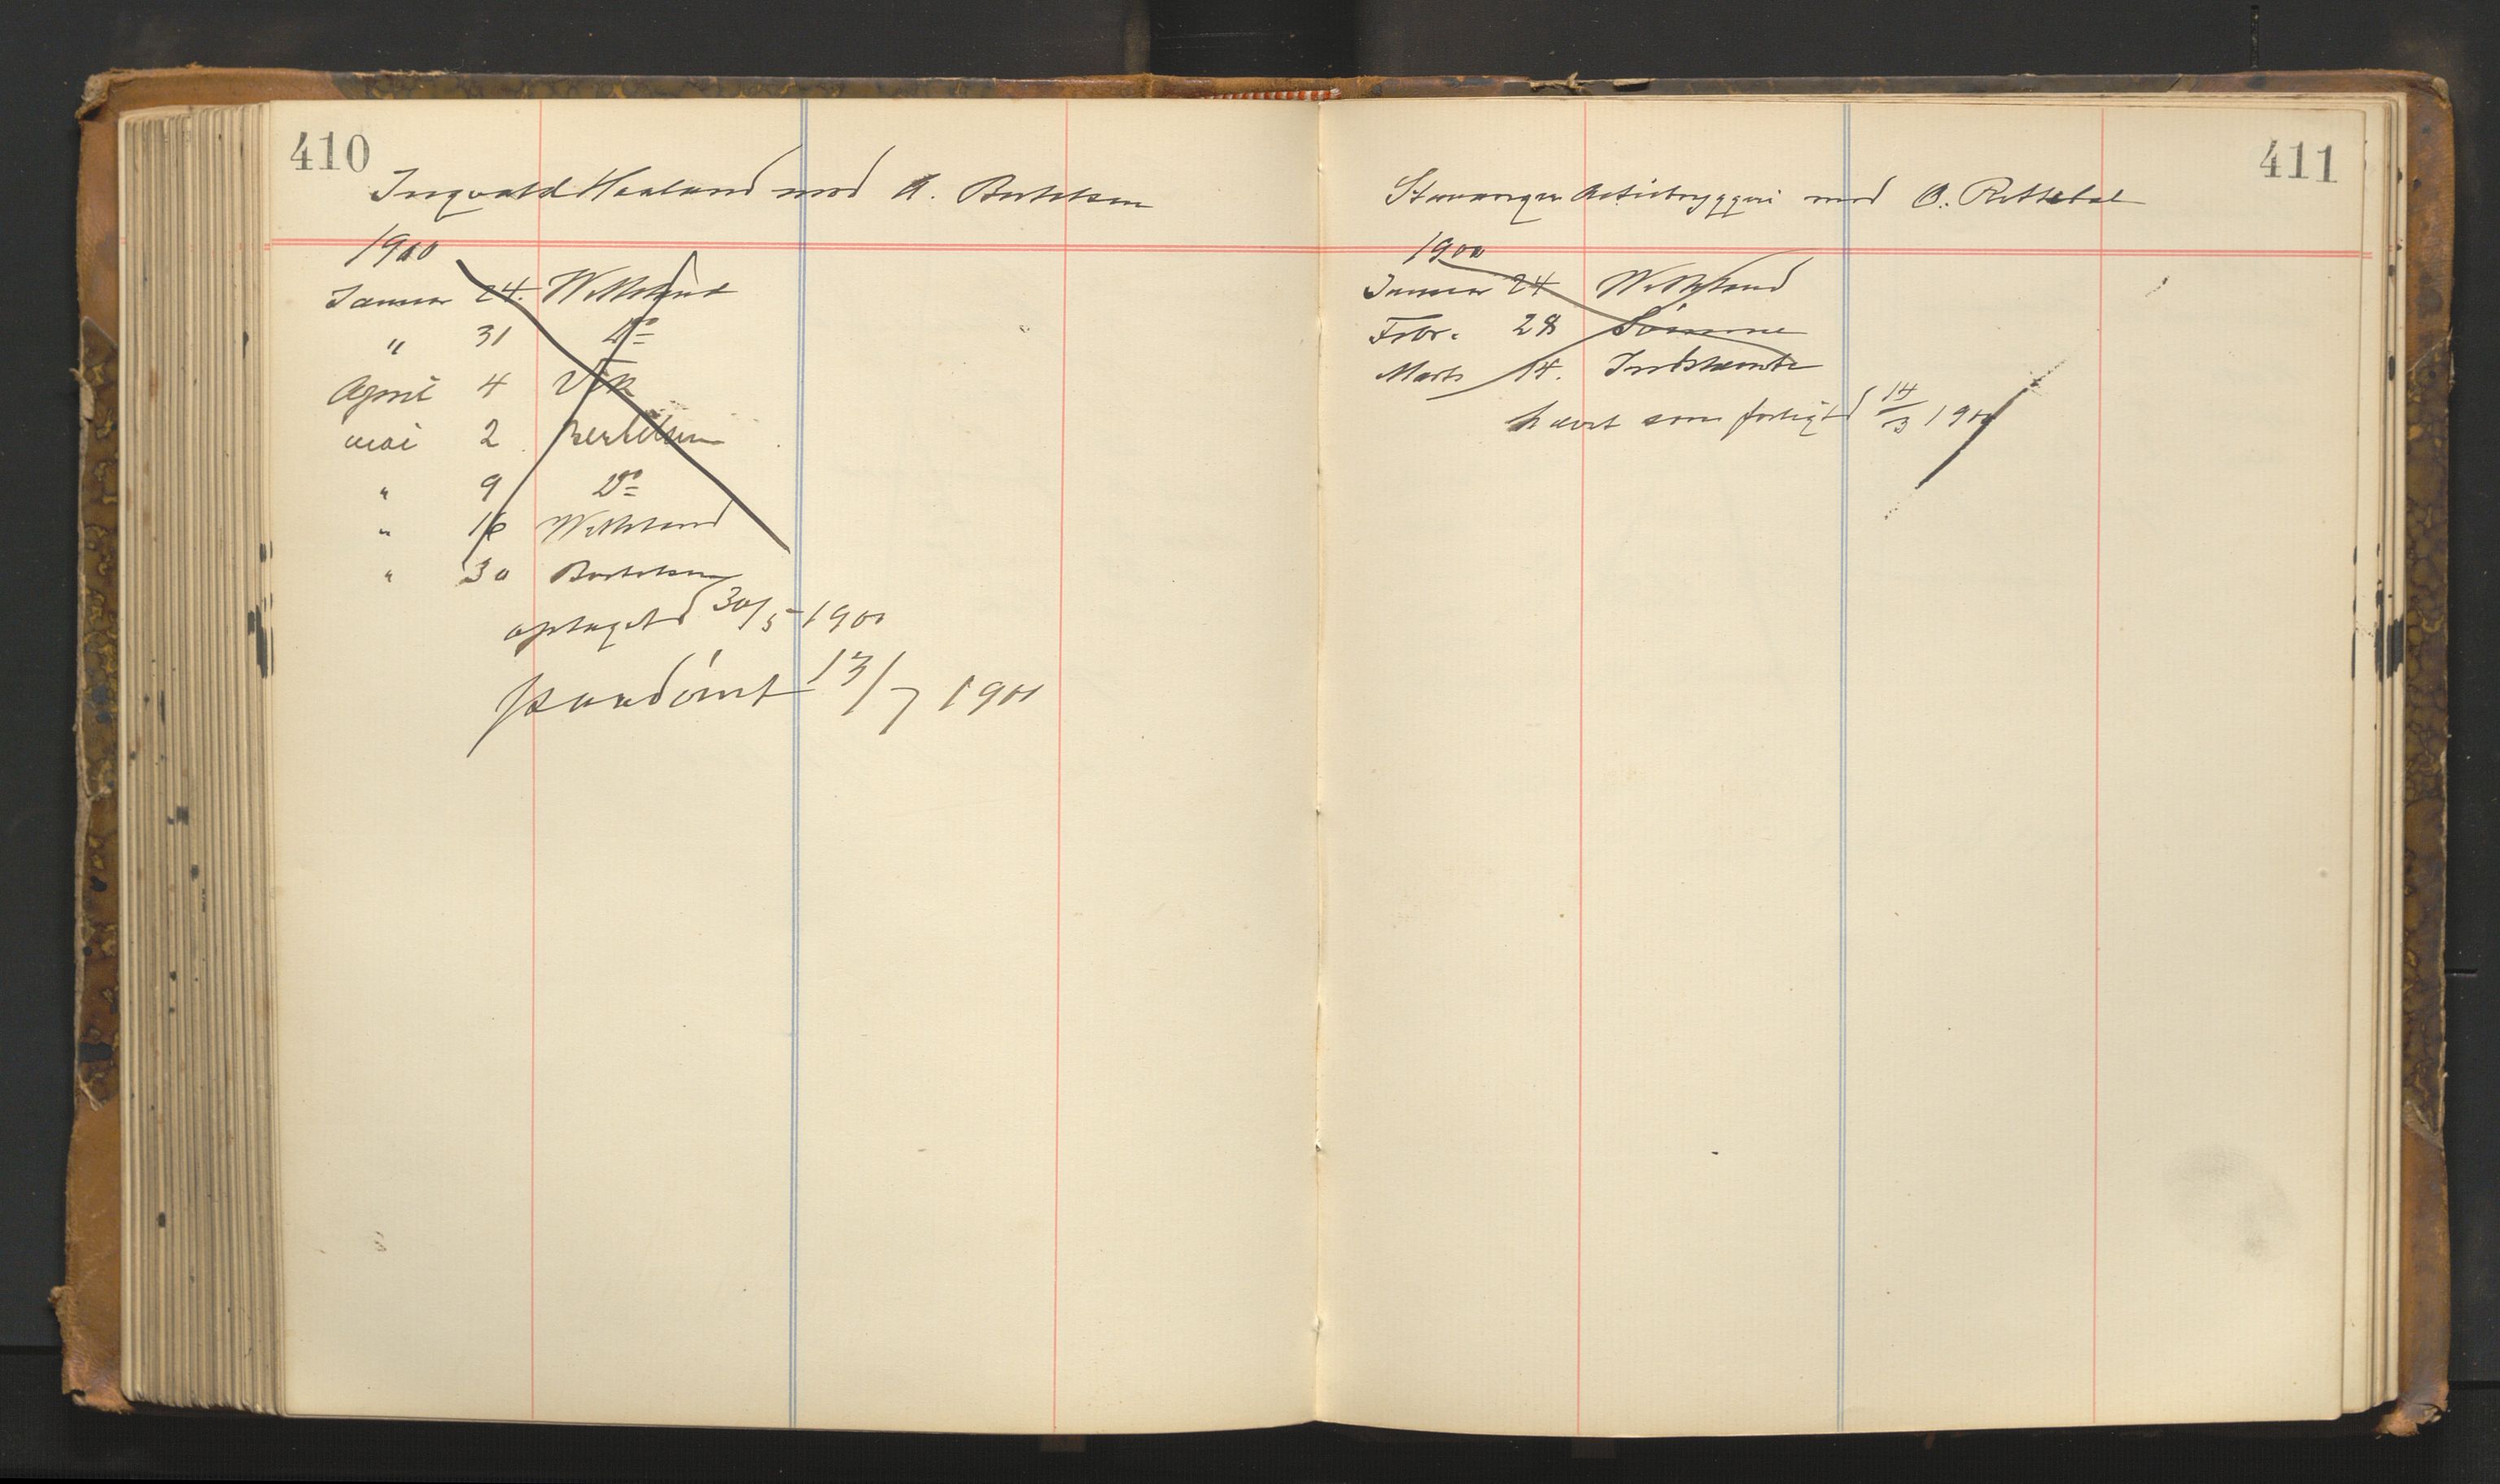 410
Ingvald Haaland mod A. Bertelsen
1900
Januar 24. Wetteland
" 31 Do
April 4 Vik
mai 2 Bertelsen
" 9 Do
" 16 Wetteland
" 30 Bertelsen
optaget d 30/5 1900
paadömt 13/7 1900
411
Stavanger Actiebryggeri mod O. Rettedal
1900
Januar 24 Wetteland
Febr. 28 Sömme
Marts 14. Indstævnte
hævet som forligt d 14/3 1900